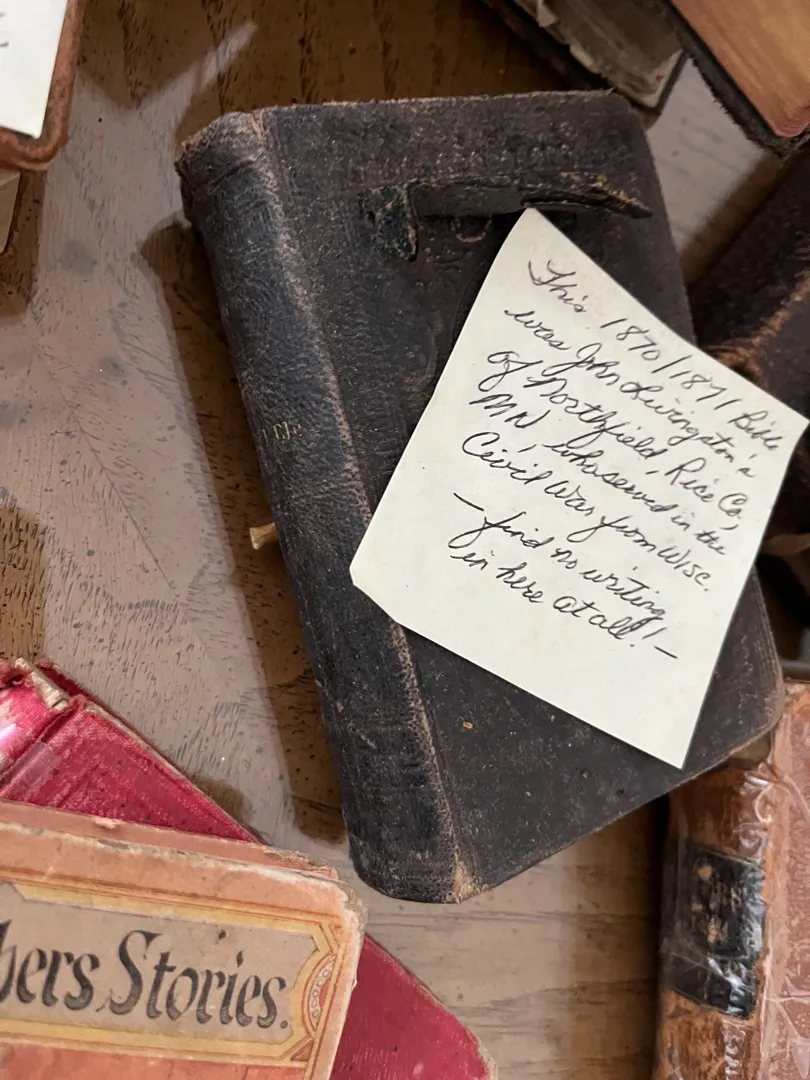 This 1870/1871 Bible
was John Livingston's
of Northfield, Rice Co,
MN, who served in the
Civil War from Wisc.
— find no writing
in here at all! —
Stories.